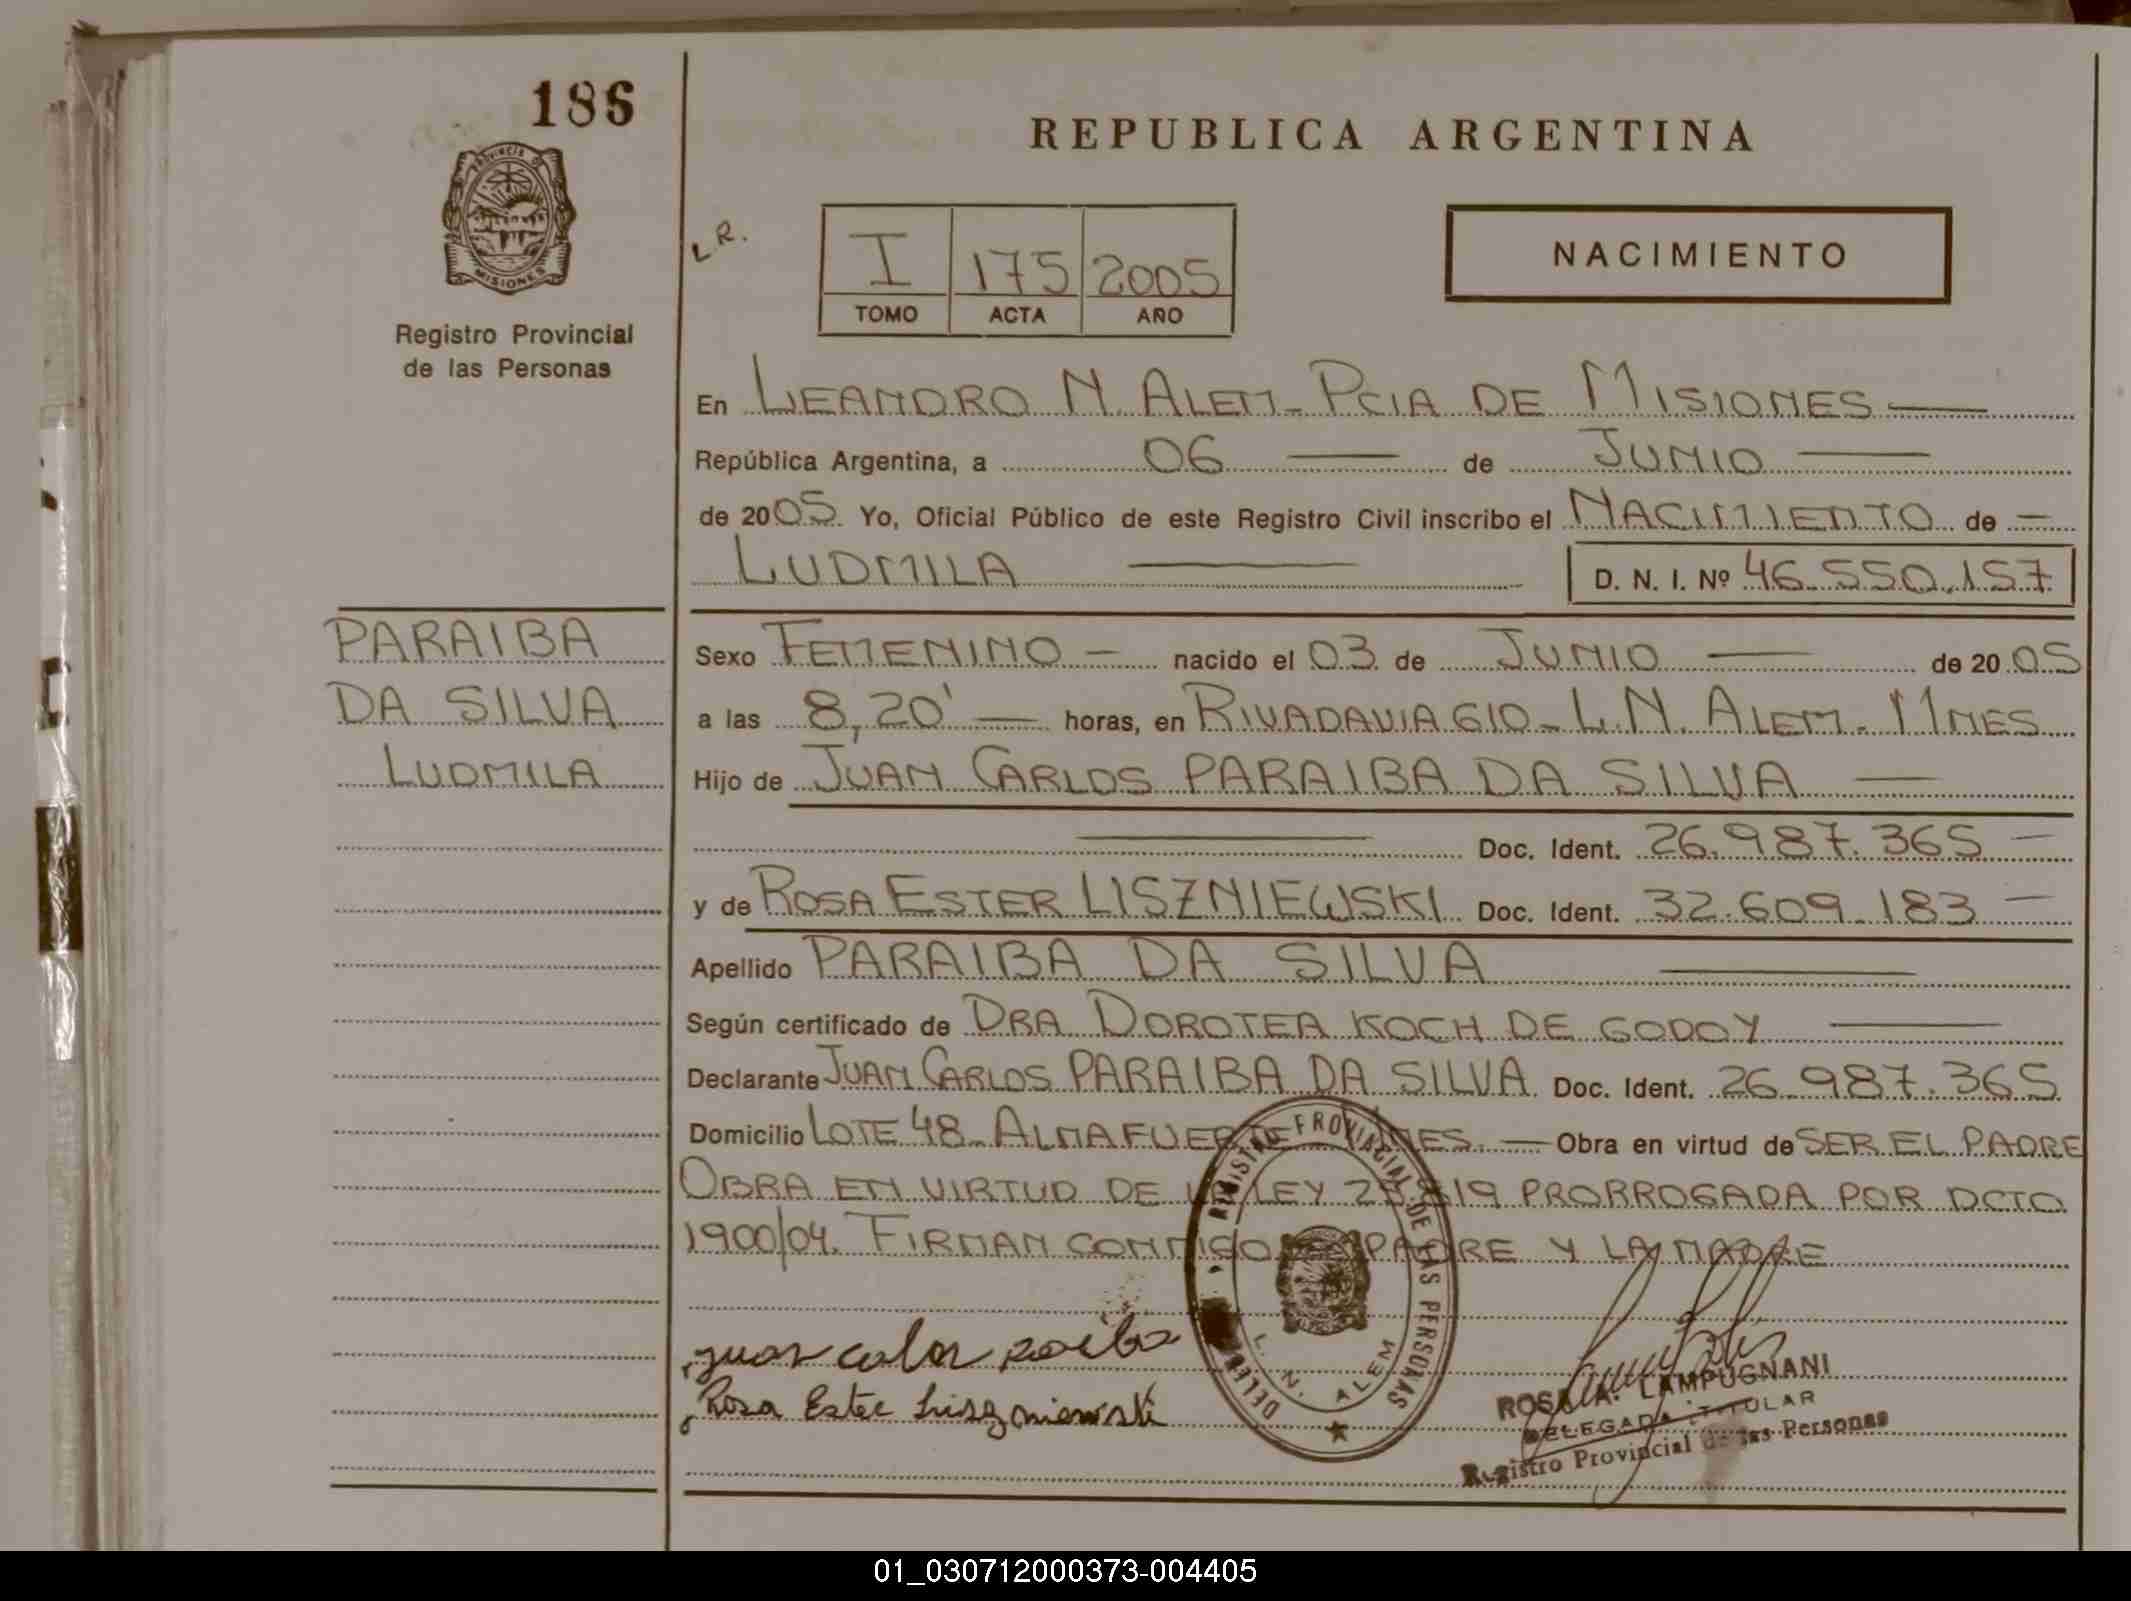 186
PROVINCIA DE
MISIONES
Registro Provincial
de las Personas
REPUBLICA ARGENTINA
L R.
I 175 2005
TOMO ACTA AÑO
NACIMIENTO
En LEANDRO N. ALEM - PCIA DE MISIONES —
República Argentina, a 06 — de JUNIO —
de 2005. Yo, Oficial Público de este Registro Civil inscribo el NACIMIENTO de —
LUDMILA —
D. N. I. Nº 46.550.157
PARAIBA
DA SILVA
LUDMILA
Sexo FEMENINO — nacido el 03 de JUNIO — de 2005
a las 8,20' — horas, en RIVADAVIA 610 - L.N. ALEM - MNES
Hijo de JUAN CARLOS PARAIBA DA SILVA —
— Doc. Ident. 26.987.365 —
y de ROSA ESTER LISZNIEWSKI Doc. Ident. 32.609.183 —
Apellido PARAIBA DA SILVA —
Según certificado de DRA DOROTEA KOCH DE GODOY —
Declarante JUAN CARLOS PARAIBA DA SILVA Doc. Ident. 26.987.365
Domicilio LOTE 48 - ALMAFUERTE MNES. — Obra en virtud de SER EL PADRE
OBRA EN VIRTUD DE LA LEY 25.819 PRORROGADA POR DCTO
1900/04. FIRMAN CONMIGO EL PADRE Y LA MADRE
REGISTRO PROVINCIAL DE LAS PERSONAS
L. N. ALEM
Rosa Ester Liszniewski
ROSA A. LAMPUGNANI
DELEGADA TITULAR
Registro Provincial de las Personas
01_030712000373-004405